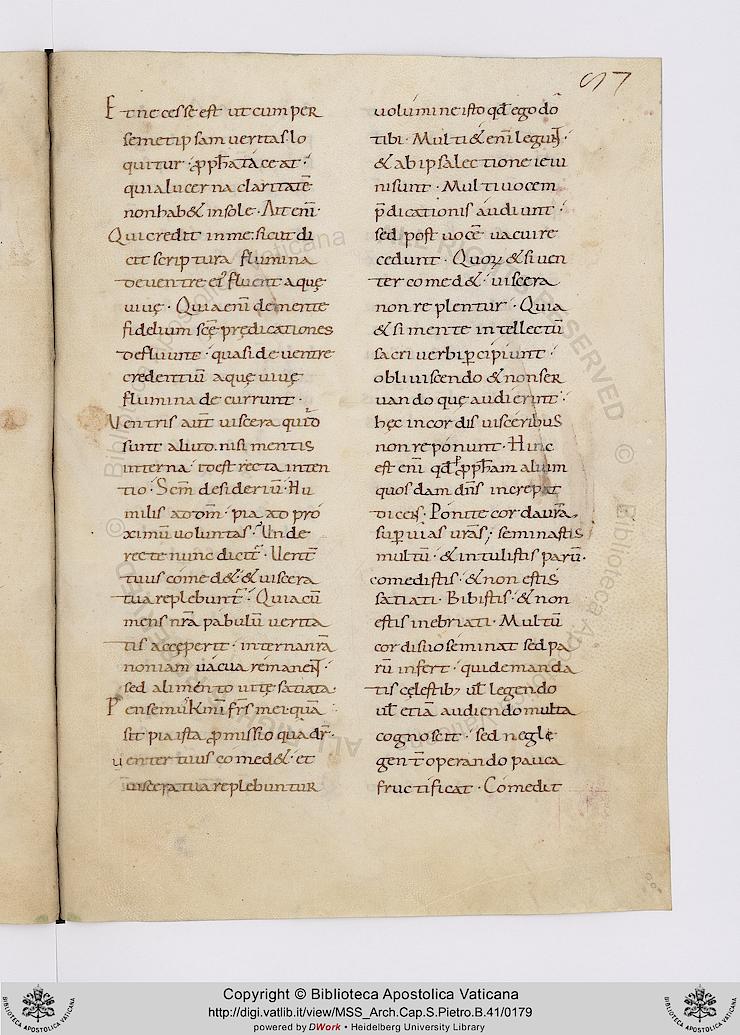 S7
Et necesse est ut cum per
semetipsam ueritas lo
quitur · ꝓph&atilde;tia ceat ·
quia lucerna claritatē
non hab& in sole · Ait eni ·
Qui credit in me · sicut di
cit scriptura flumina
de uentre ei&#x27; fluent aquę
uiuę · Quia eni de mente
fidelium scę prędicationes
defluunt · quasi de uentre
credentiū aquę uiuę
flumina decurrunt ·
Ventris aut̄ uiscera quid
sunt aliud · nisi mentis
interna · id est recta inten
tio · Scm̄ desideriū · Hu
milis ad dm̄ · pia ad pro
ximū uoluntas · Unde
recte nunc dicit̄ · Uent̄
tuus comed& & uiscera
tua replebunt̄ · Quia cū
mens nr̄a pabulū uerita
tis acceperit · interna nr̄a
non iam uacua remanent ·
sed alimento uitę satiata ·
Pensemus km̄i fr̄s mei · quā
sit pia ista ꝓmissio qua dr̄ ·
uenter tuus comed& · et
uiscera tua replebuntur
uolumine isto qd̄ ego do
tibi · Multi & eni legunt ·
& ab ipsa lectione ieiu
ni sunt · Multi uocem
p̄dicationis audiunt ·
sed post uocē uacui re
cedunt · Quorꝝ & si uen
ter comed& · uiscera
non replentur · Quia
& si mente intellectū
sacri uerbi ꝑcipiunt ·
obliuiscendo & non ser
uando quę audierint ·
hęc in cordis uisceribus
non reponunt · Hinc
est eni qd̄ ꝓph&atilde;m alium
quosdam dn̄s increpat
dicens · Ponite corda ur̄a
suꝑ uias ur̄as; seminastis
multū · & intulistis parū ·
comedistis · & non estis
satiati · Bibistis · & non
estis inebriati · Multū
cordi suo seminat sed pa
rū infert · qui de manda
tis cęlestibꝫ uł legendo
uł etiā audiendo multa
cognoscit · sed negle
gent̄ operando pauca
fructificat · Comedit
Copyright © Biblioteca Apostolica Vaticana
http://digi.vatlib.it/view/MSS_Arch.Cap.S.Pietro.B.41/0179
powered by DWork • Heidelberg University Library